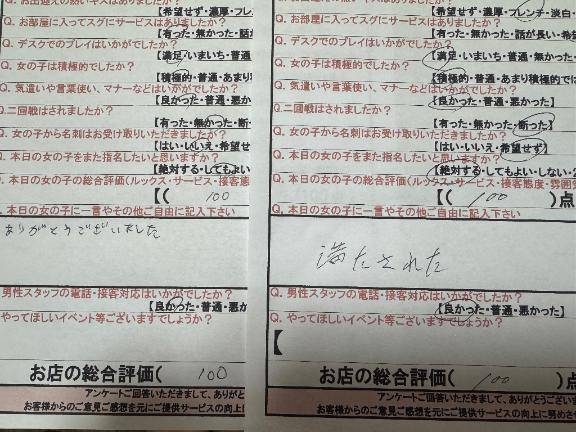 【希望せず・濃厚・フレ
Q. お部屋に入ってスグにサービスはありましたか?
【有った・無かった・話
Q. デスクでのプレイはいかがでしたか?
【満足・いまいち・普通
Q. 女の子は積極的でしたか?
【積極的・普通・あまり
Q. 気遣いや言葉使い、マナーなどはいかがでしたか?
【良かった・普通・悪か
Q.二回戦はされましたか?
【有った・無かった・断
Q. 女の子から名刺はお受け取りいただきましたか?
【はい・いいえ・希望せ
Q. 本日の女の子をまた指名したいと思いますか?
【絶対する・してもよい
Q. 本日の女の子の総合評価(ルックス・サービス・接客態
【( 100
Q. 本日の女の子に一言やその他ご自由に記入下さい
ありがとうございました
男性スタッフの電話・接客対応はいかがでしたか?
【良かった・普通・悪か
やってほしいイベント等ございますでしょうか?
お店の総合評価( 100
アンケートご回答いただきまして、ありがと
お客様からのご意見ご感想を元にサービスの向上に
【希望せず・濃厚・フレンチ・淡白
Q. お部屋に入ってスグにサービスはありましたか?
【有った・無かった・話が長い・希
Q. デスクでのプレイはいかがでしたか?
【満足・いまいち・普通・無
Q. 女の子は積極的でしたか?
【積極的・普通・あまり積極的で
Q. 気遣いや言葉使い、マナーなどはいかがでしたか?
【良かった・普通・悪かった】
Q.二回戦はされましたか?
【有った・無かった・断った】
Q. 女の子から名刺はお受け取りいただきましたか?
【はい・いいえ・希望せず】
Q. 本日の女の子をまた指名したいと思いますか?
【絶対する・してもよい・しない・
Q. 本日の女の子の総合評価(ルックス・サービス・接客態度・雰囲
【( 100 )点
Q, 本日の女の子に一言やその他ご自由に記入下さい
満たされた
Q. 男性スタッフの電話・接客対応はいかがでしたか?
【良かった・普通・悪かった】
Q. やってほしいイベント等ございますでしょうか?
【
お店の総合評価( 100 )点
アンケートご回答いただきまして、ありがとうござい
お客様からのご意見ご感想を元にご提供サービスの向上に努めさせ